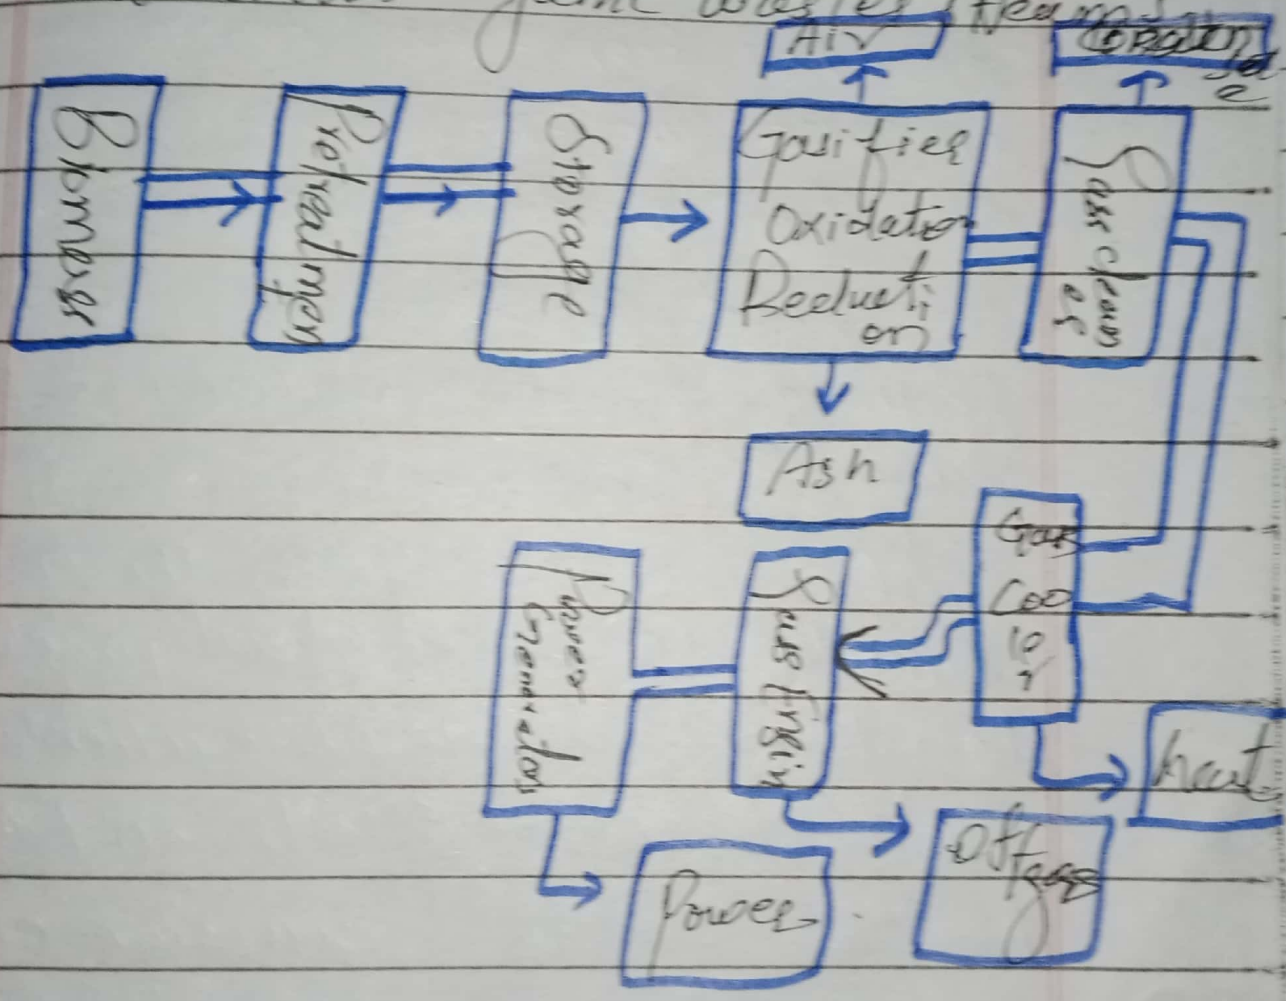 Air
Biomass
Pretreatmen
Storage
Gasifier
Oxidation
Reducti
on
Gass clean
er
Ash
Gas
Coo
ler
heat
Gas Engin
Power
Generators
Off
gas
Power